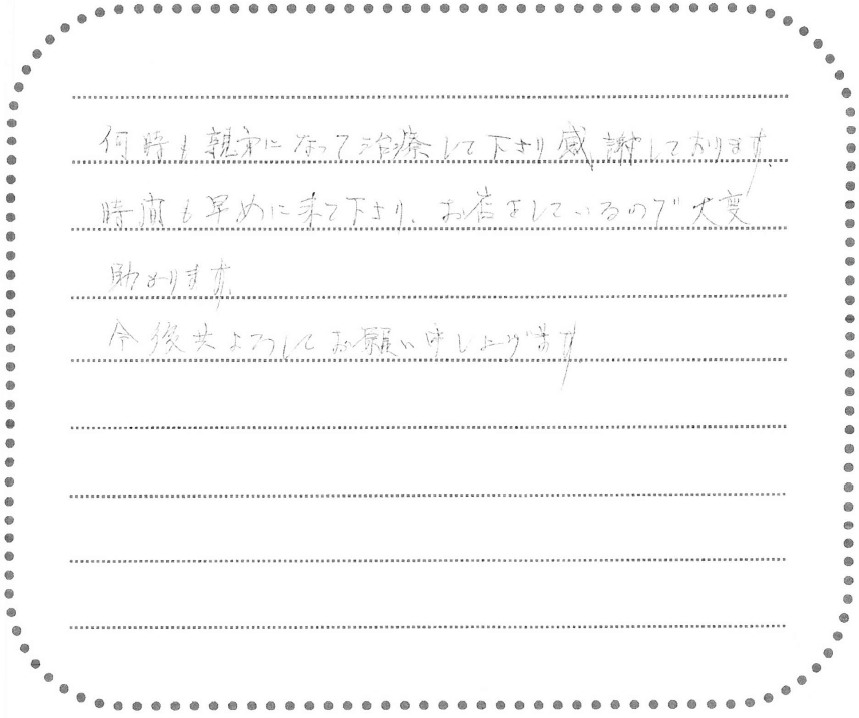 何時も親身になって治療して下さり感謝しております。
時間も早めに来て下さり、お店をしているので大変
助かります。
今後共よろしくお願い申し上げます